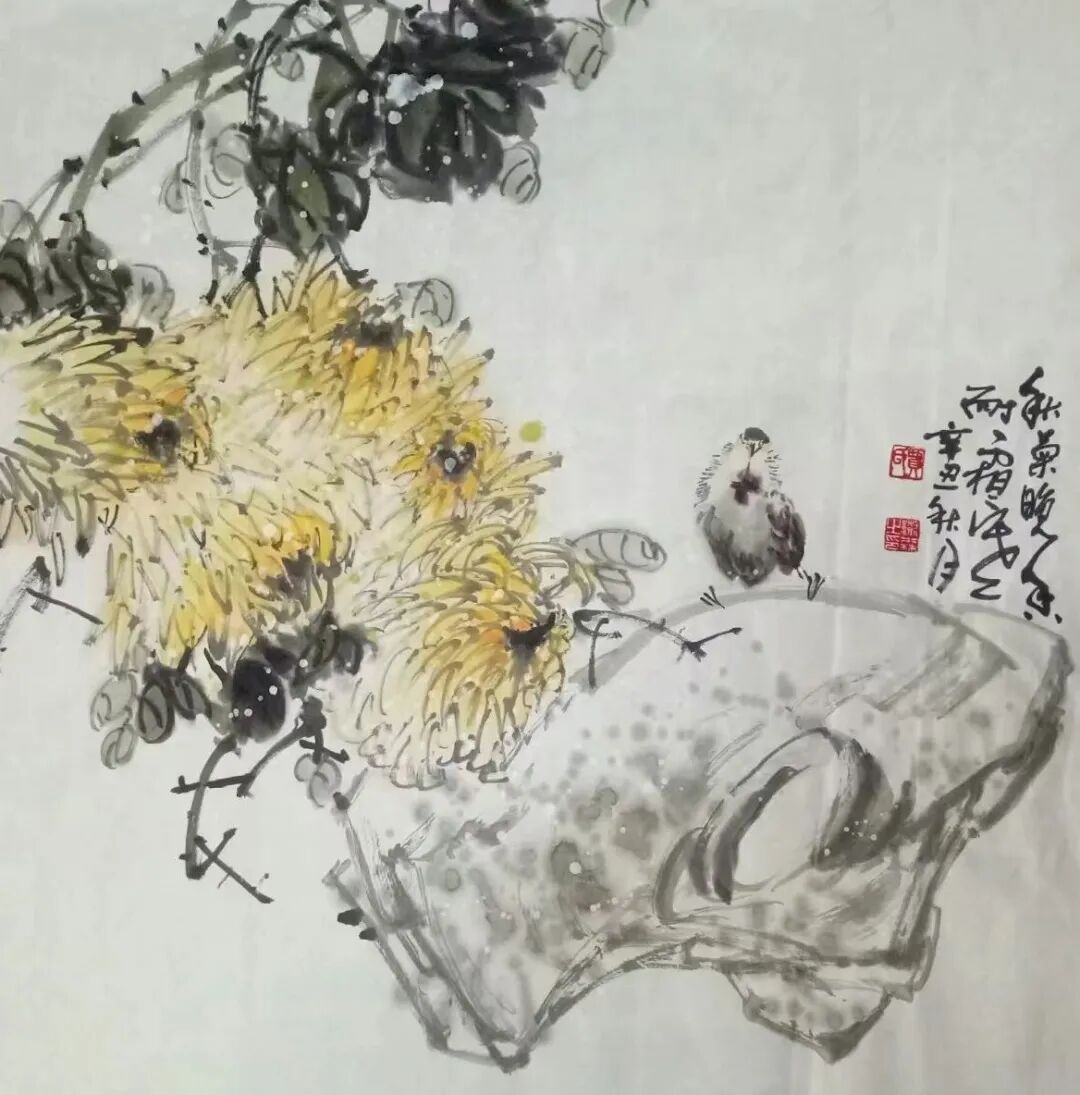 秋菊晚香
耐霜寒
辛丑秋月